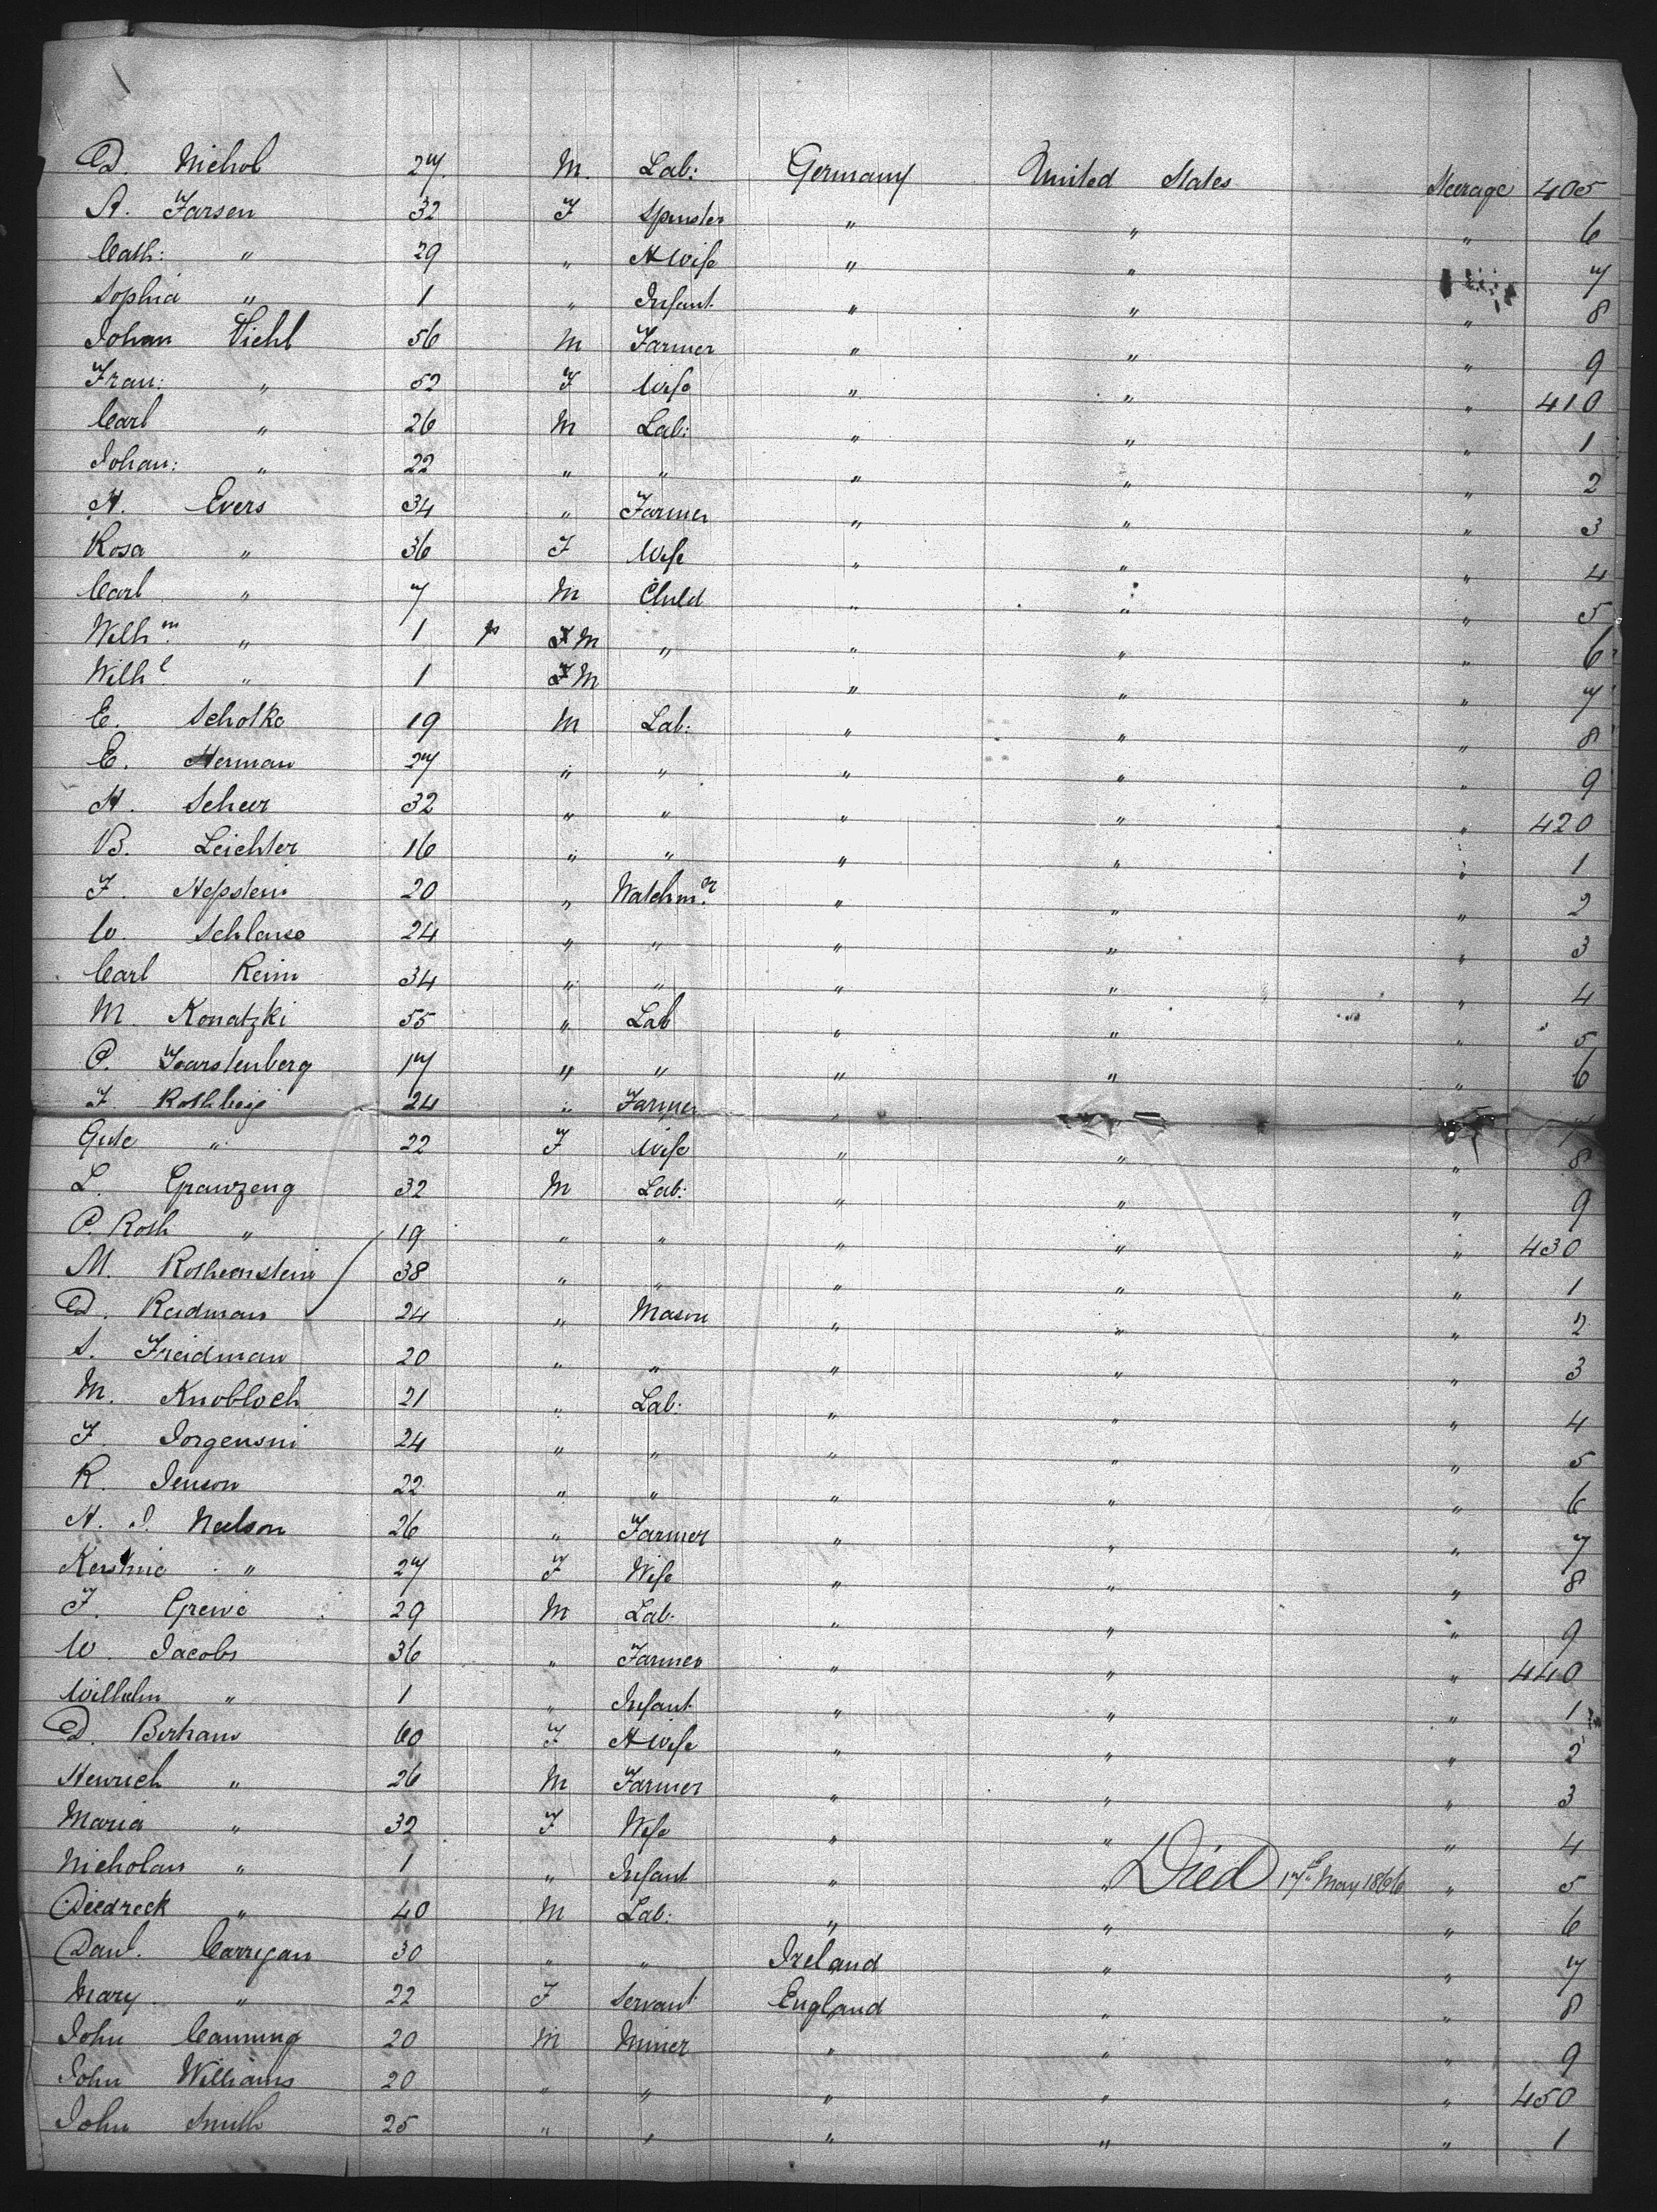 D. Nichol 27. M. Lab: Germany United States Steerage 405
A. Jarsen 32 F Spinster " " " 6
Cath: " 29 " H Wife " " " 7
Sophia " 1 " Infant " " " 8
Johan Viehl 56 M Farmer " " " 9
Fran: " 52 F Wife " " " 410
Carl " 26 M Lab: " " " 1
Johan: " 22 " " " " " 2
H. Evers 34 " Farmer " " " 3
Rosa " 36 F Wife " " " 4
Carl " 7 M Child " " " 5
Wilhm. " 1 M " " " " 6
Wilhl " 1 M " " " 7
E. Scholke 19 M Lab: " " " 8
E. Herman 27 " " " " " 9
H. Scheer 32 " " " " " 420
B. Leichter 16 " " " " " 1
F. Hepstein 20 " Watchmr. " " " 2
W. 24 " " " " " 3
Carl Reim 34 " " " " " 4
M. Konatzki 55 " Lab " " " 5
P. 17 " " " " " 6
F. 24 " Farmer " "
" 22 F Wife " " " 8
L. Granzeng 32 M Lab: " " " 9
P. Roth " 19 " " " " " 430
M. 38 " " " " " 1
D. Reidman 24 " Mason " " " 2
S. Freidman 20 " " " " " 3
M. Knobloch 21 " Lab: " " " 4
F. 24 " " " " " 5
R. Jenson 22 " " " " " 6
H. J. Neelson 26 " Farmer " " " 7
" 27 F Wife " " " 8
F. Grewe 29 M Lab. " " " 9
W. Jacobs 36 " Farmer " " " 440
Wilhelm " 1 " Infant " " " 1
D. 60 F H Wife " " " 2
Heinrich " 26 M Farmer " " " 3
Maria " 32 F Wife " " " 4
Nicholaus " 1 " Infant " " Died 17th May 1866 " 5
Diedreck " 40 M Lab: " " " 6
Danl. Carrigan 30 " " Ireland " " 7
Mary " 22 F Servant England " " 8
John Canning 20 M Miner " " " 9
John Williams 20 " " " " " 450
John Smith 25 " " " " " 1